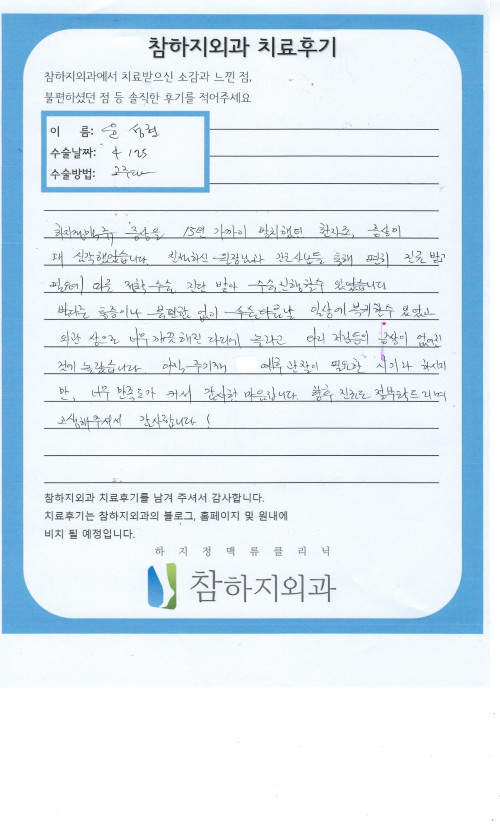 참하지외과 치료후기
참하지외과에서 치료받으신 소감과 느낀 점,
불편하셨던 점 등 솔직한 후기를 적어주세요
이 름: 윤
수술날짜: 4 / 25
수술방법:
하지정맥류 증상을 15년 가까이 방치했던 환자로, 증상이
꽤 심각했었습니다. 친절하신 원장님과 간호사분들을 통해 편히 진료 받고
필요에 따른 정확한 수술 진단 받아 수술 진행할 수 있었습니다
별다른 통증이나 불편감 없이 수술 다음날 일상에 복귀할 수 있었고
외관 상으로 너무 깨끗해진 다리에 놀라고 다리 저림등의 증상이 없어진
것에 놀랐습니다. 아직 주기적 예후 관찰이 필요한 시기라 하시지
만, 너무 만족도가 커서 감사한 마음입니다. 향후 진료도 잘 부탁드리며
고생해주셔서 감사합니다!
참하지외과 치료후기를 남겨 주셔서 감사합니다.
치료후기는 참하지외과의 블로그, 홈페이지 및 원내에
비치 될 예정입니다.
하지정맥류클리닉
참하지외과